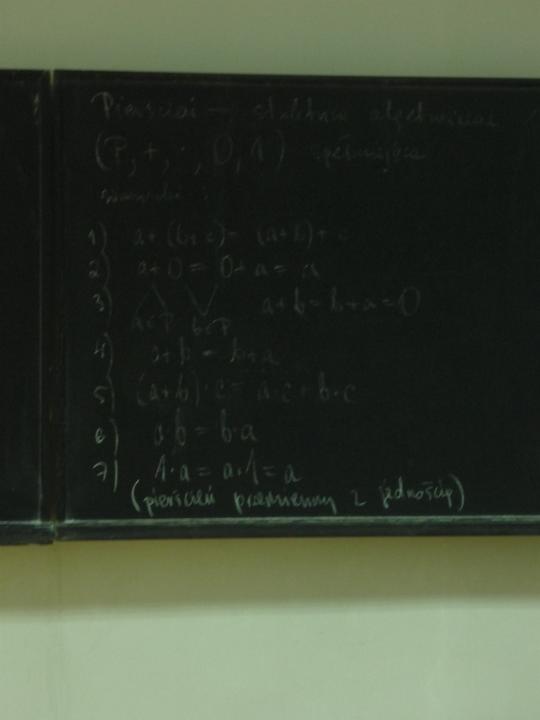 Pierścień – struktura algebraiczna
(P, +, ·, 0, 1) spełniająca
warunki:
1) a+(b+c)= (a+b)+c
2) a+0 = 0+a = a
3) ⋀ ⋁ a+b=b+a=0
a∈P b∈P
4) a+b = b+a
5) (a+b)·c = a·c+b·c
6) a·b = b·a
7) 1·a = a·1 = a
(pierścień przemienny z jednością)